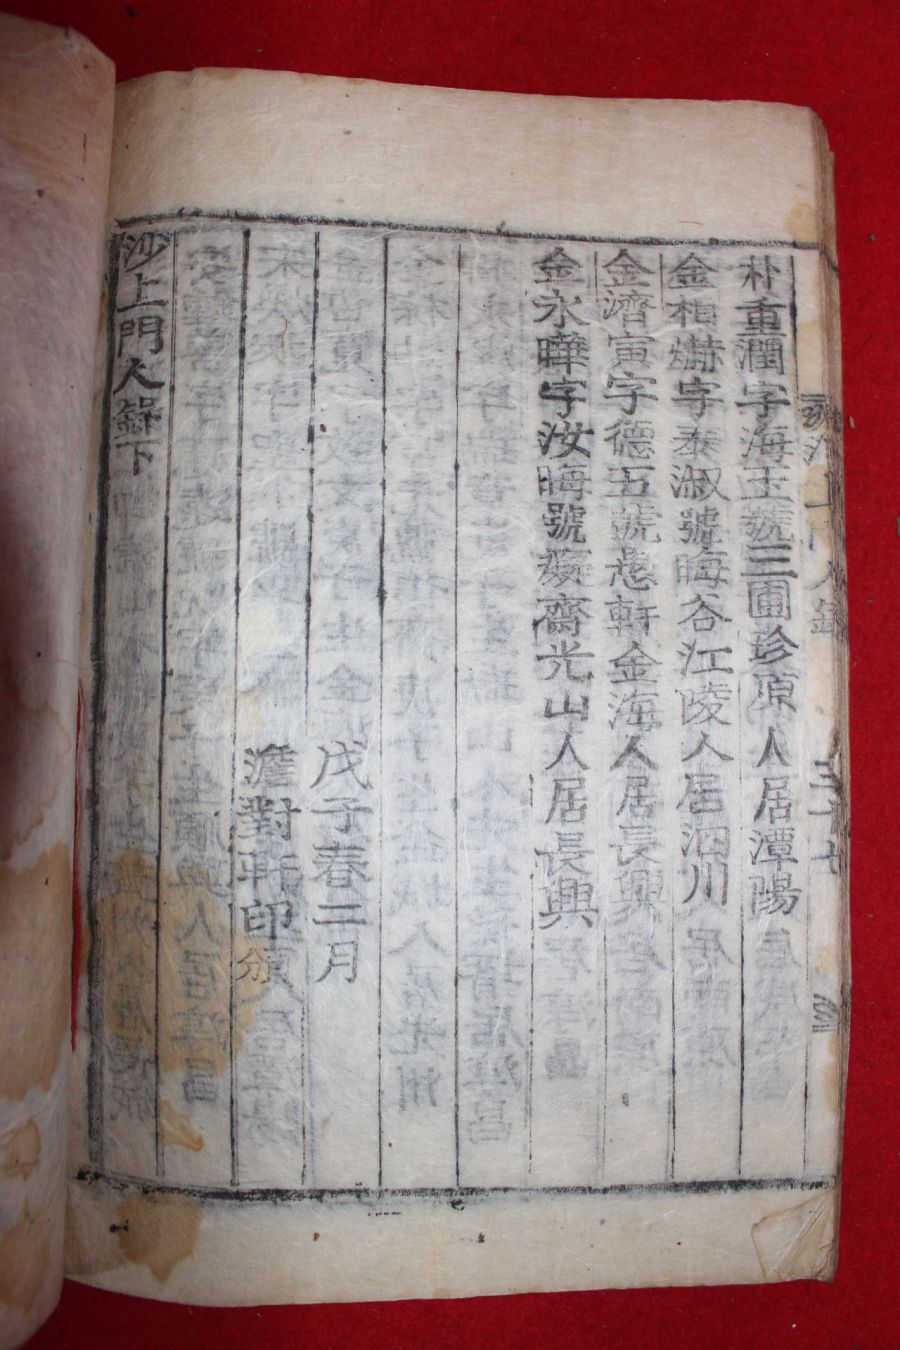 朴重潤字海玉號三圃珍原人居潭陽
金相爀字泰淑號晦谷江陵人居泗川
金濟寅字德五號愚軒金海人居長興
金永曄字汝晦號癡齋光山人居長興
戊子春二月
澹對軒印頒
沙上門人錄下